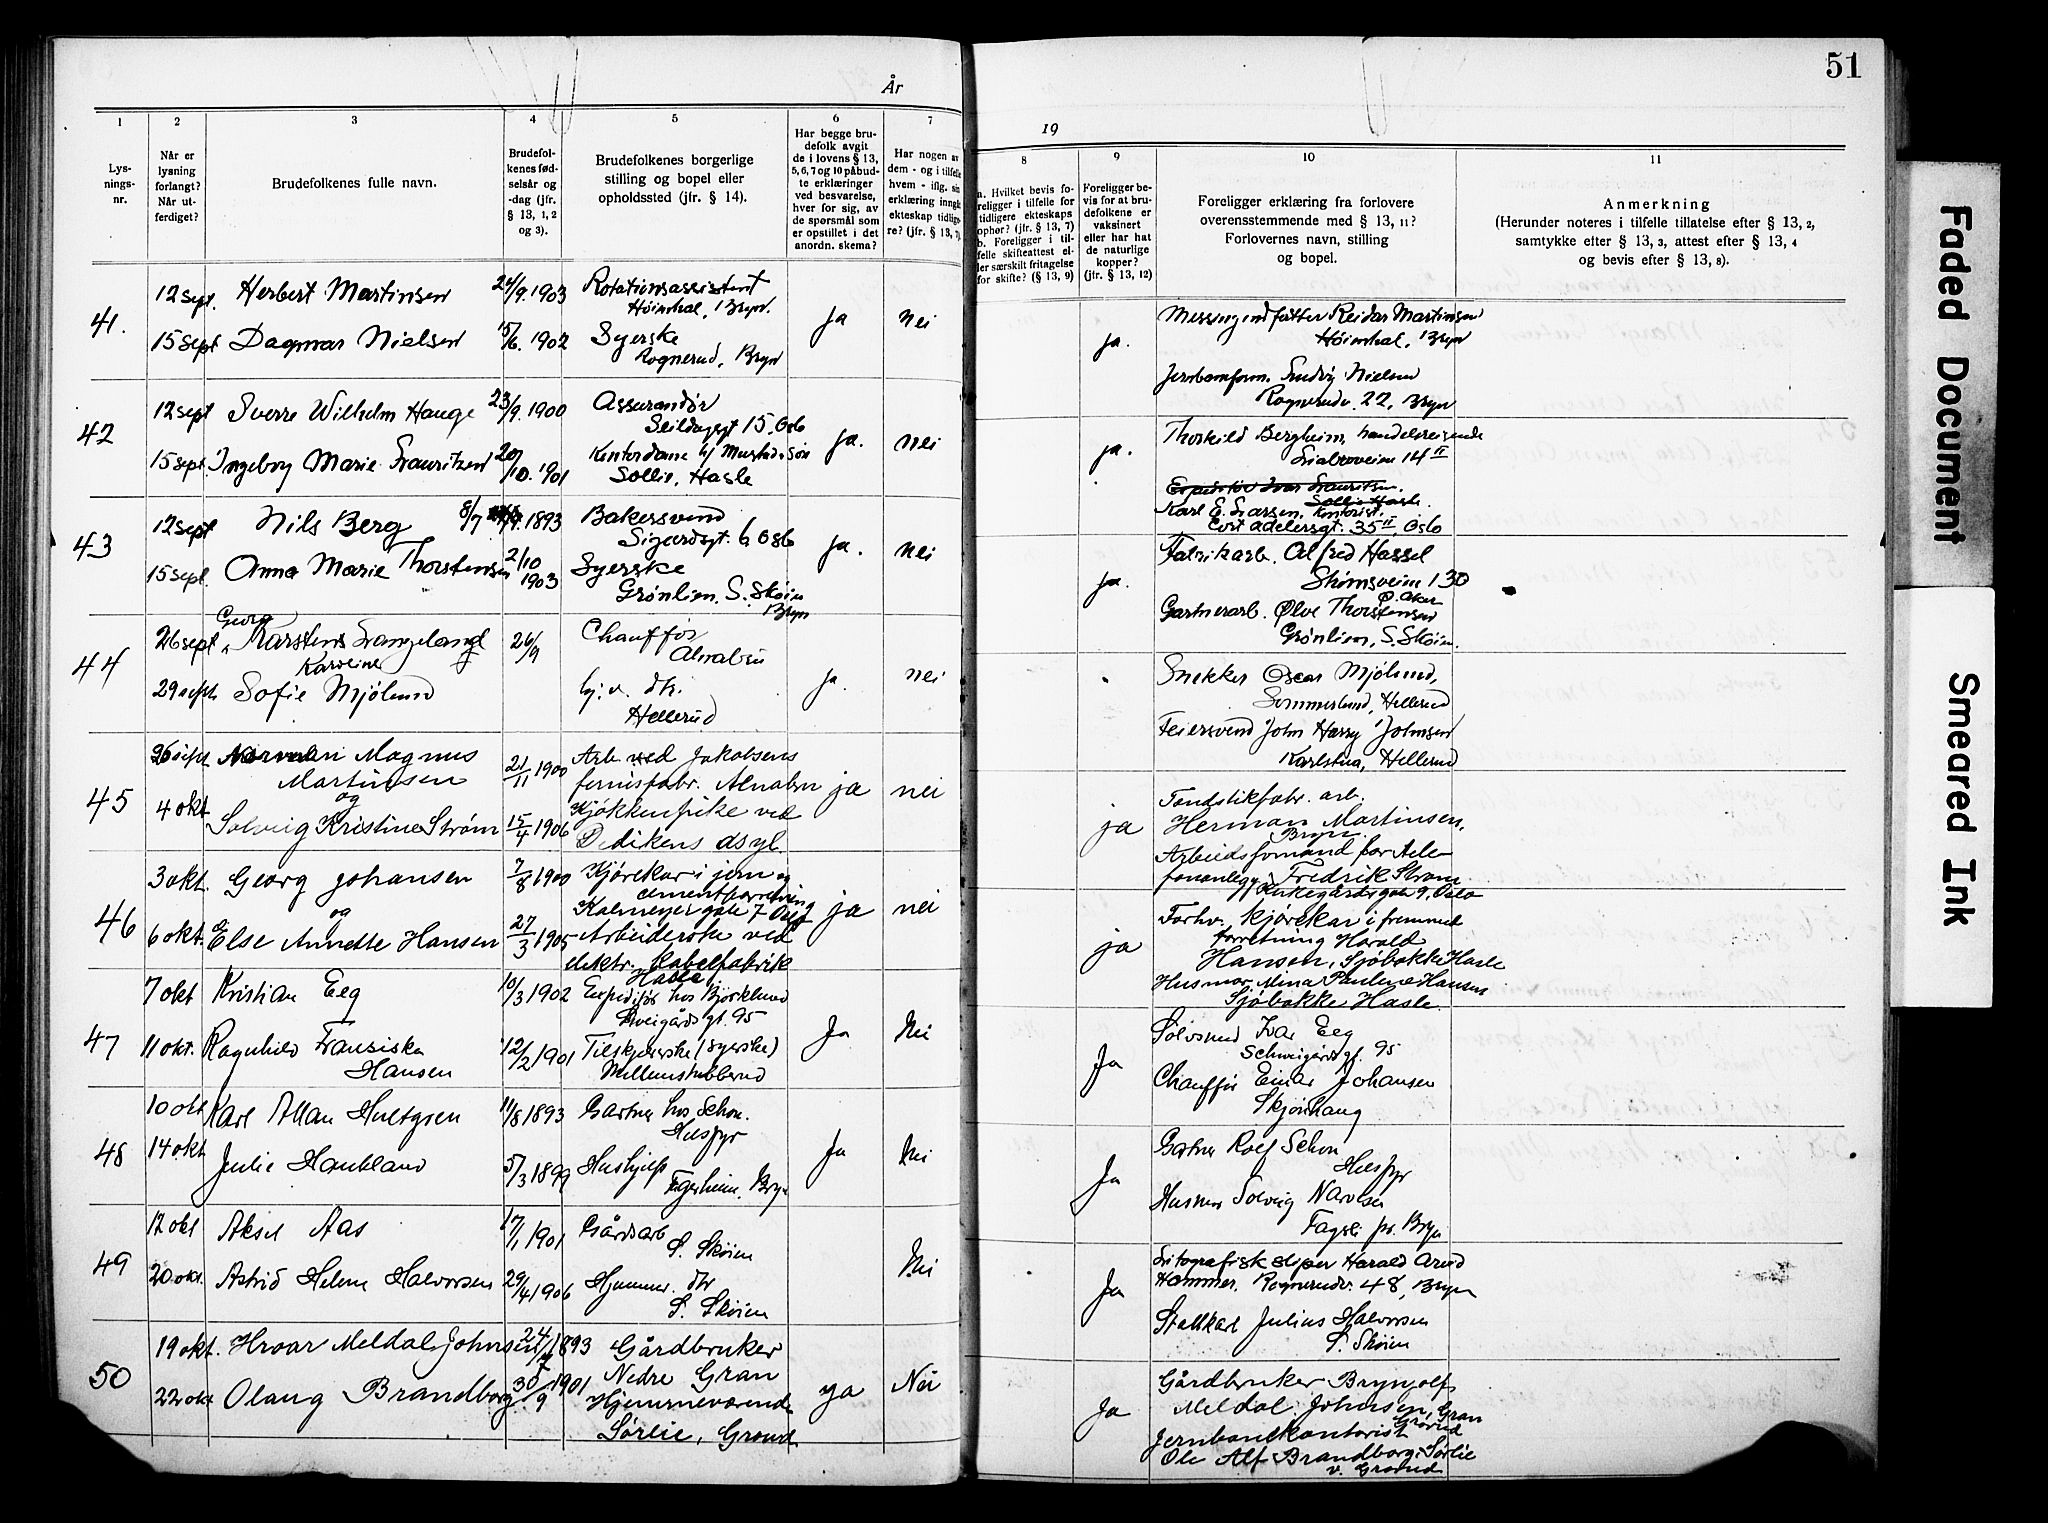 51
År
19
1
2
3
4
5
6
7
8
9
10
11
Lys-
nings-
nr.
Når er
lysning
forlangt?
Når ut-
ferdiget?
Brudefolkenes fulle navn.
Brudefol-
kenes fød-
selsår og
-dag (jfr.
§ 13, 1, 2
og 3).
Brudefolkenes borgerlige
stilling og bopel eller
opholdssted (jfr. § 14).
Har begge bru-
defolk avgit
de i lovens § 13,
5, 6, 7 og 10 påbud-
te erklæringer
ved besvarelse,
hver for sig, av
de spørsmål som
er opstillet i det
anordn. skema?
Har nogen av
dem - og i tilfelle
hvem - iflg. sin
erklæring inngått
ekteskap tidlige-
re? (jfr. § 13, 7).
a. Hvilket bevis fo-
religger i tilfelle for
tidligere ekteskaps
ophør? (jfr. § 13, 7)
b. Foreligger i til-
felle skifteattest el-
ler særskilt fritagelse
for skifte? (§ 13, 9)
Foreligger be-
vis for at bru-
defolkene er
vaksinert
eller har hat
de naturlige
kopper?
(jfr. § 13, 12)
Foreligger erklæring fra forlovere
overensstemmende med § 13, 11?
Forlovernes navn, stilling
og bopel.
Anmerkning
(Herunder noteres i tilfelle tillatelse efter § 13, 2,
samtykke efter § 13, 3, attest efter § 13, 4
og bevis efter § 13, 8).
41.
12 sept.
Herbert Martinsen
24/9. 1903
Rotationsassistent
Høienhal, Bryn.
15 sept
Dagmar Nielsen
15/6. 1902
Syerske
Rognerud, Bryn
ja
nei
ja.
Reidar Martinsen
Høienhal, Bryn
Nielsen
Rognerudv. 22, Bryn
42
12 sept
Sverre Wilhelm Hauge
23/9. 1900
Assurandør
Seildugsgt 15. Oslo
15 sept.
Ingeborg Marie Lauritzen
20/10. 1901
Kontordame
Sollie, Hasle
ja.
nei
ja.
Thorkild Bergheim, handelsreisende
14 II
Sollie Hasle.
Karl E. Larsen, Kontorist.
Cort Adelersgt. 35 II, Oslo
43
12 sept
Nils Berg
8/7 1893
Bakersvend
Sigurdsgt. 6 Oslo
15 sept.
Anna Marie Thorstensen
2/10 1903
Syerske
Grønlien, S. Skøien
Bryn
ja.
nei
ja.
Fabrikarb. Alfred Hassel
Strømsveien 130
Ø. Aker
Gartnerarb. Ølve Thorstensen
Grønlien, S. Skøien.
44
26 sept
Georg
Karstens Langeland
26/9
Chauffør
Alnabru
Karoline
29 sept.
Sofie Mjølund
hj. v. dtr.
Hellerud
ja.
nei
Snekker Oscar Mjølund,
Sommerlund, Hellerud
Feiersvend John Harry Johnsen
Karlstua, Hellerud
45
26 sept
Magnus
Martinsen
og
21/11 1900
Arb. ved Jakobsens
fernisfabr. Alnabru
4 okt
Solveig Kristine Strøm
15/4 1906
Kjøkkenpike ved
Dedikens asyl.
ja
nei
ja
Tendstikfabr. arb.
Herman Martinsen,
Bryn.
Fredrik Strøm
Kirkegårdsgate 9, Oslo
46
3 okt.
Georg Johansen
og
7/8 1900
Kjørekar i jern og
cementforretning
Kalmeyergate 7 Oslo
6 okt.
Else Annette Hansen
27/3 1905
Arbeiderske ved
elektr. Kabelfabrik
Hasle
ja
nei
ja
Forhv. kjørekar i fremmed
forretning Harald
Hansen, Sjøbakke Hasle
Husmor Mina Pauline Hansen
Sjøbakke Hasle.
47
7 okt
Kristian Eeg
10/3 1902
Expeditør hos Bjørklund
Schweigårdsgt. 95
11 okt.
Ragnhild Fransiska
Hansen
12/2 1901
Tilskjærerske (syerske)
Ja
Nei
Ja
Ivar Eeg
Schweigårdsgt. 95
Chauffør Einar Johansen
Skjønhaug
48
10 okt
Karl Allan Hultgren
11/8 1893
Gartner hos Schou.
Helsfyr
14 okt
Julie Haukland
5/3 1899
Hushjelp
Fagerheim, Bryn
Ja
Nei
Ja
Gartner Rolf Schou
Helsfyr
Husmor Solveig Narvesen
Fagerli pr. Bryn
49
12 okt
Aksel Aas
17/1 1901
Gårdsarb
S. Skøien
20. okt.
Astrid Helene Halvorsen
29/4 1906
Hjemmev. dtr
S. Skøien
Nei
Ja
Litografisk sliper Harald Arvid
Hammer, Rognerudv. 48, Bryn
Stallkarl Julius Halvorsen
S. Skøien
50
19 okt.
Hroar Meldal Johnsen
24/ 1893
Gårdbruker
Nedre Gran
22 okt
Olaug Brandborg
30/9 1901
Hjemmeværende
Sørlie, Grorud
ja
Nei
Ja
Gårdbruker Brynjolf
Meldal Johnsen, Gran
Grorud
Jernbanekontorist
Ole Alf Brandborg, Sørlie
v. Grorud
Faded Document
Smeared Ink